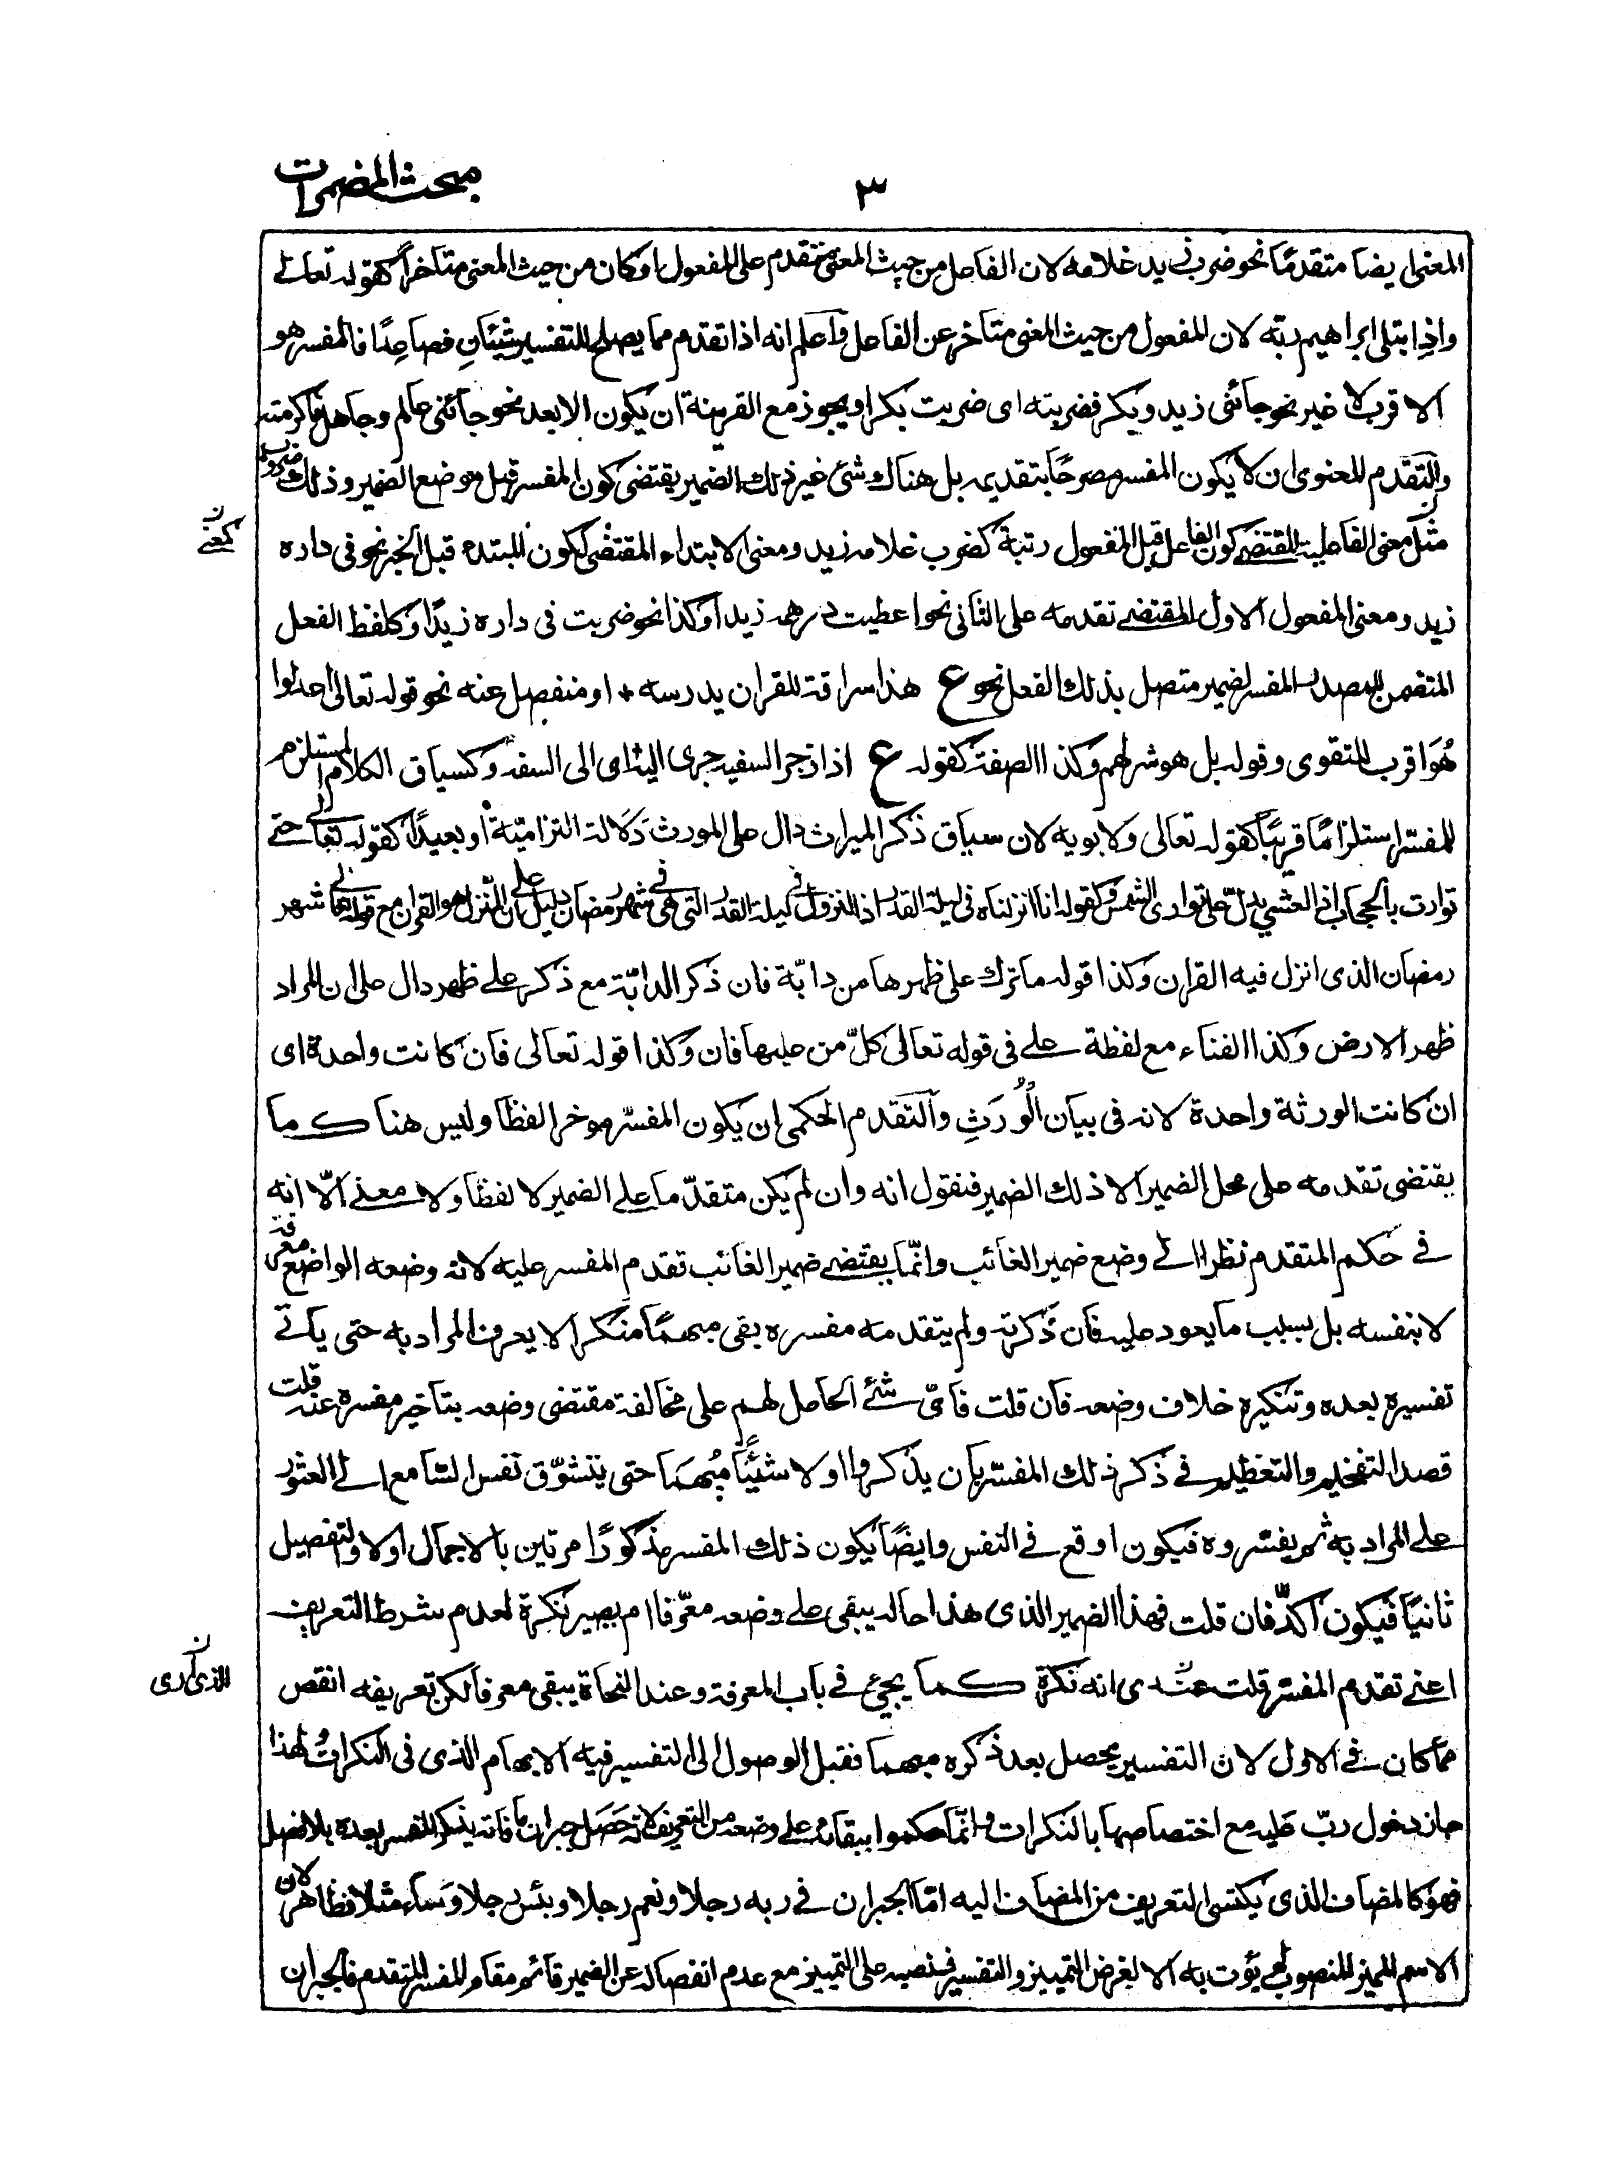 مبحث المضمرات
٣
المعنى ايضا متقدمًا نحو ضرب زيد غلامه لان الفاعل من حيث المعنى متقدم على المفعول او كان من حيث المعنى متاخرًا كقوله تعالى
واذِ ابتلى ابراهيم ربّه لان المفعول من حيث المعنى متاخر عن الفاعل وآعلم انه اذا تقدم مما يصلح للتفسير شيئانِ فصاعِدًا فالمفسر هو
الاقرب لا غير نحو جائنى زيد وبكر فضربته اى ضربت بكرا ويجوز مع القرينة ان يكون الابعد نحو جائنى عالم وجاهل فاكرمته
والتقدم المعنوى ان لا يكون المفسر مصرحًا بتقديمه بل هناك شئ غير ذلك الضمير يقتضى كون المفسر قبل موضع الضمير وذلك ضروب
مثل معنى الفاعلية المقتضى كون الفاعل قبل المفعول رتبة كضرب غلامه زيد ومعنى الابتداء المقتضى لكون المبتدء قبل الخبر نحو فى داره
كمعنى
زيد ومعنى المفعول الاول المقتضى تقدمه على الثانى نحو اعطيت درهمه زيدا وكذا نحو ضربت فى داره زيدًا وكلفظ الفعل
المتضمن للمصدر المفسر لضمير متصل بذلك الفعل نحو ع هذا سراقة للقران يدرسه + او منفصل عنه نحو قوله تعالى اعدلوا
هُوَ اقرب للتقوى وقوله بل هو شر لهم وكذا الصفة كقوله ع اذا زجر السفيه جرى اليه اى الى السفه وكسياق الكلام المستلزم
للمفسّر استلزامًا قريبًا كقوله تعالى ولابويه لان سياق ذكر الميراث دال على المورث دَلالة التزاميّة أو بعيدًا كقوله تعالى حتى
توارت بالحجاب اذ العشي يدلّ على توارى الشمس وكقوله انا انزلناه فى ليلة القدر اذ النزول فى ليلة القدر التى هى فى شهر رمضان دليل على ان المنزل هو القران مع قوله تعالى شهر
رمضان الذى انزل فيه القران وكذا قوله ما ترك على ظهرها من دابّة فان ذكر الدابّة مع ذكر على ظهر دال على ان المراد
ظهر الارض وكذا الفناء مع لفظة على فى قوله تعالى كلّ من عليها فان وكذا قوله تعالى فان كانت واحدة اى
ان كانت الورثة واحدة لانه فى بيان الُورَثِ وآلتقدم الحكمى ان يكون المفسّر موخر الفظا وليس هناك ما
يقتضى تقدمه على محل الضمير الا ذلك الضمير فنقول انه وان لم يكن متقدّما على الضمير لا لفظا ولا معنى الّا انه
فى حكم المتقدم نظرا الى وضع ضمير الغائب وانّما يقتضى ضمير الغائب تقدم المفسر عليه لانه وضعه الواضع معرفة
لا بنفسه بل بسبب ما يعود عليه فان ذكرته ولم يتقدمه مفسره بقى مبهمًا منكرا لا يعرف المراد به حتى ياتى
تفسيره بعده وتنكيره خلاف وضعه فان قلت فاىّ شئ الحامل لهم على مخالفة مقتضى وضعه بتاخير مفسره عنه قلت
قصد التفخيم والتعظيم فى ذكر ذلك المفسّر بان يذكروا اولا شيئًا مُبهَمَا حتى يتشوّق نفس السّامع الى العثور
على المراد به ثم يفسّروه فيكون اوقع فى النفس وايضًا يكون ذلك المفسر مذكورًا مرتين بالاجمال اولا والتفصيل
ثانيًا فيكون آكدّ فان قلت فهذا الضمير الذى هذا حاله يبقى على وضعه معرّفا ام يصير نكرة لعدم شرط التعريف
اعنى تقدم المفسّر قلت عندى انه نكرة كما يجئ فى باب المعرفة وعند النحاة يبقى معرفا لكن تعريفه انقص
الذى ارى
مما كان فى الاول لان التفسير يحصل بعد ذكره مبهما فقبل الوصول الى التفسير فيه الابهام الذى فى النكرات ولهذا
جاز دخول ربّ عليه مع اختصاصها بالنكرات وانّما حكموا ببقائه على وضعه من التعريف لانه حَصَل جبران ما فاته بذكر المفسر بعده بلا فصل
فهو كالمضاف الذى يكتسى التعريف من المضاف اليه امّا الجبران فى ربه رجلا ونعم رجلا وبئس رجلا وسَاء مثلا فظاهر لان
الاسم المميز المنصوب لم يؤت به الا لغرض التمييز والتفسير فنصبه على التمييز مع عدم انفصاله عن الضمير قائم مقام المفسر المتقدم فالجبران